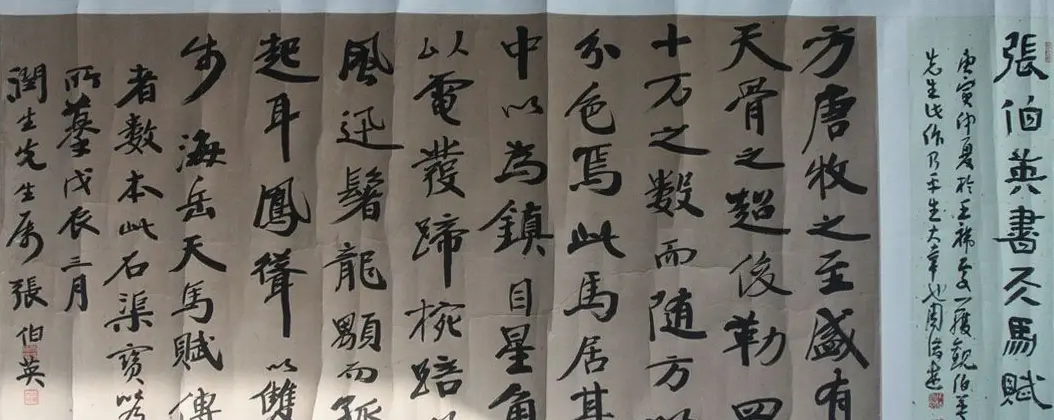 張伯英書天馬賦
庚寅仲夏於王 一獲觀伯英
先生此作乃平生大 也周
方唐牧之至盛有
天骨之超俊勒四
十万之數而随方
分色焉此馬居其
中以為鎮目星角
以電發蹄椀踣
風迅鬐龍顒而孤
起耳鳳聳以雙
步海岳天馬賦傳
者數本此石渠寶笈
所摹戊辰三月
潤生先生属張伯英